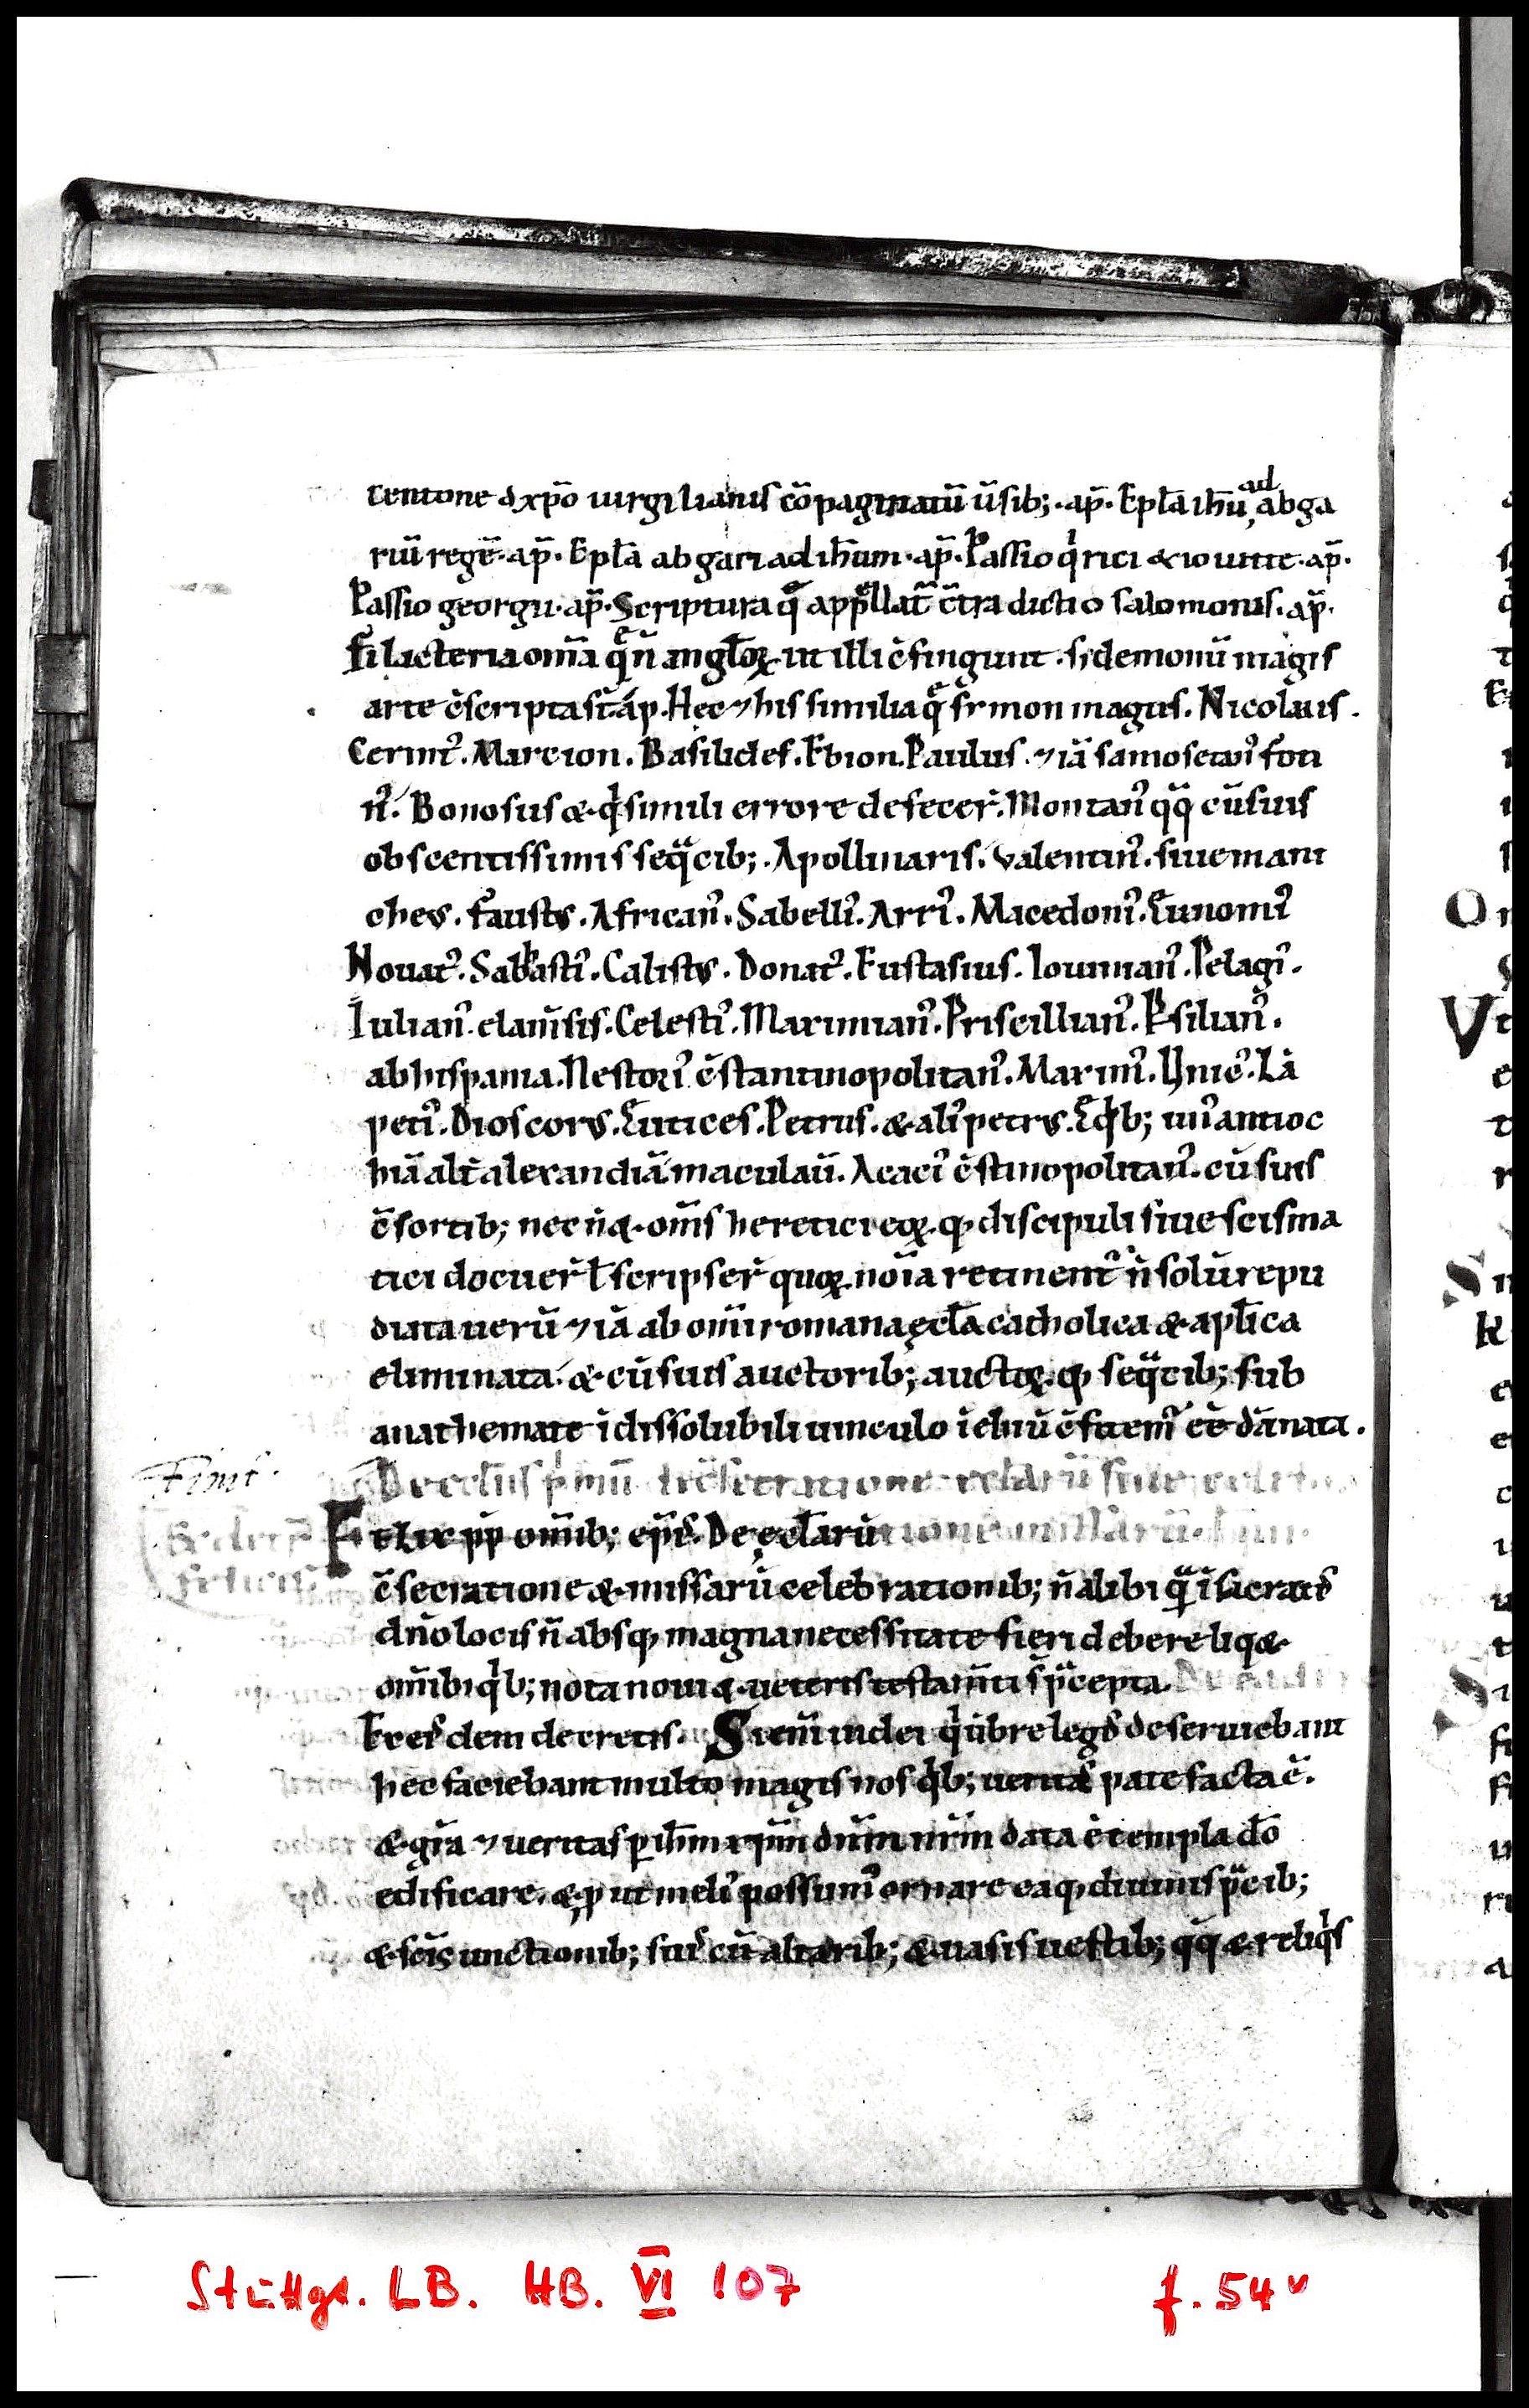 centone d xp̄o uirgilianis cōpaginatū ūsib; . ap̄. Epl̄a ih̄u ad abga
riū regē. ap̄. Epl̄a abgari ad ih̄um. ap̄. Passio q͛rici & iouitte. ap̄.
Passio georgii. ap̄. Scriptura q̄ appellat̄ c̄tradictio salomonis. ap̄.
filacteria om̄a q̄ n̄ angl̄oꝝ ut illi c̄fingunt. s; demonū magis
arte c̄scripta st̄ ap̄. Hec ⁊ his similia q̄ symon magus. Nicolaus.
Cerint᾽. Marcion. Basilides. Ebion. Paulus. ⁊iā samosetan᾽ foti
n᾽. Bonosus & q͛ simili errore defecer̄. Montan᾽ qq̄ cū suis
obscentissimis seq̄cib; . Apollinaris. Valentin᾽. siue mani
cheus. faustus. African᾽. Sabelli᾽. Arri᾽. Macedoni᾽. Eunomi᾽
Nouat᾽. Sabbasti᾽. Calistus. Donat᾽. Eustasius. Iouinian᾽. Pelagi᾽.
Iulian᾽ elan̄sis. Celesti᾽. Maximian᾽. Priscillian᾽. Psilian᾽.
ab hispania. Nestori᾽ c̄stantinopolitan᾽. Maxim᾽. Unic᾽. La
peti᾽. Dioscorus. Eutices. Petrus. & ali᾽ petrus. Eq͛b; un᾽ antioc
hiā alt̄ alexandiā maculaū. Acaci᾽ c̄stinopolitan᾽. cū suis
c̄sortib; nec n̄ &. om̄s heretici eoꝝ. q; discipuli siue scisma
tici docuer̄ ł scripser̄ quoꝝ noīa retinent᾽ n̄ solū repu
diata uerū ⁊iā ab om̄i romana ęcl̄a catholica & apl̄ica
eliminata. & cū suis auctorib; auctoꝝ. q; seq̄cib; sub
anathemate īdissolubili uinculo ī et̄nū c̄fitem᾽ eē dānata.
Finit.
Felix pp̄ om̄ib; ep̄is. De ęcl̄arū
c̄secratione & missarū celebrationib; n̄ alibi q̄ ī sacratis
dn̄o locis n̄ absq; magna necessitate fieri debere liq&
om̄ibi q͛b; nota noui & ueteris testam̄ti s̄ p̄cepta.
Ex eisdem decretis. Si eni᾽ iudei q͛ ūbre legis deseruiebant
hec faciebant multo magis nos q͛b; ueritas patefacta ē.
& gr̄a ⁊ ueritas p ih̄m xp̄m dn̄m nr̄m data ē templa dō
edificare. & p ut meli᾽ possum᾽ ornare eaq; diuinis p̄cib;
& sc̄is unctionib; suis cū altarib; & uasis uestib; qq̄ & reliq͛s
Stuttgt. LB. HB. VI 107
f. 54v